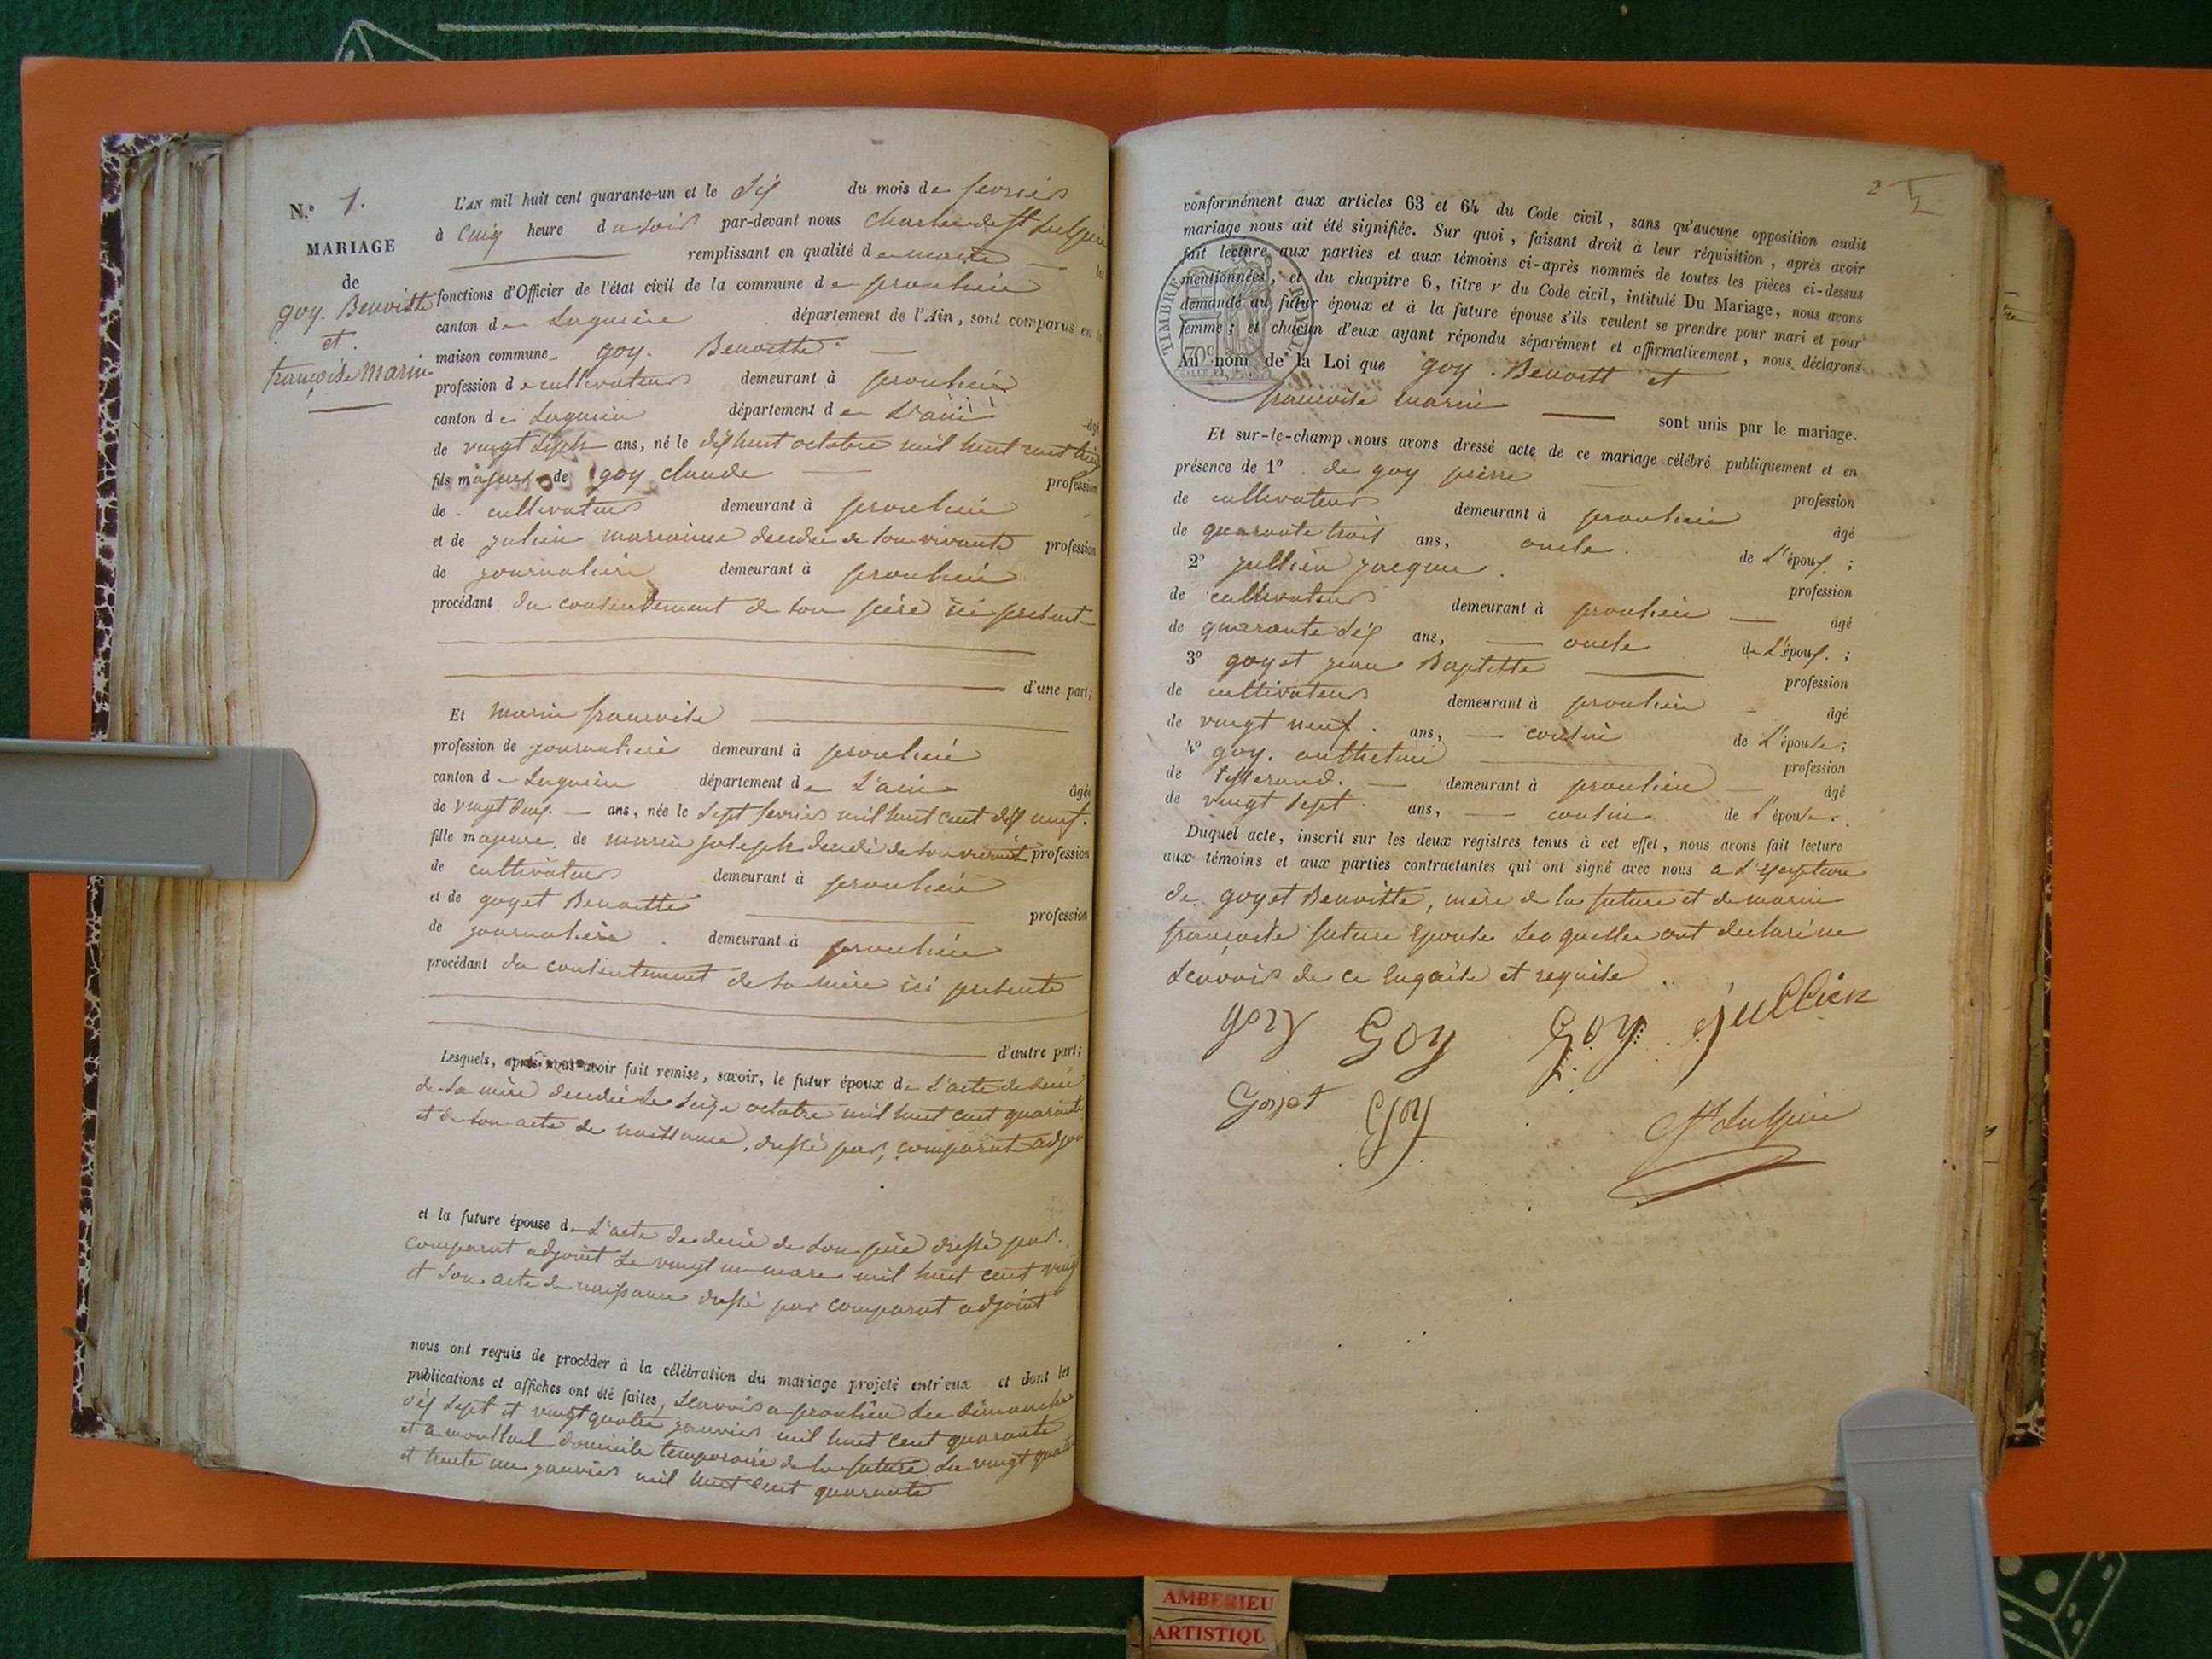 N.º 1.
MARIAGE
de
goy. Benoitte
et
françoise Marin
L'AN mil huit cent quarante-un et le dix du mois de fevrier
à cinq heure du soir par-devant nous Charles de St
remplissant en qualité de maire les
fonctions d'Officier de l'état civil de la commune de proulieu
canton de Lagnieu département de l'Ain, sont comparus en la
maison commune goy. Benoitte
profession de cultivateur demeurant à proulieu
canton de Lagnieu département de L'ain âgé
de vingt sept ans, né le dix huit octobre mil huit cent
fils majeur de goy claude profession
de cultivateur demeurant à proulieu
et de julien marianne decedee de son vivante profession
de journaliere demeurant à proulieu
procédant du consentement de son père ici present
d'une part;
Et marin francoise
profession de journaliere demeurant à proulieu
canton de Lagnieu département de L'ain âgée
de vingt deux ans, née le sept fevrier mil huit cent dix neuf.
fille majeure de marin joseph decedé de son vivant profession
de cultivateur demeurant à proulieu
et de goyet Benoitte profession
de journaliere demeurant à proulieu
procédant du consentement de sa mère ici presente
d'autre part;
Lesquels, après nous avoir fait remise, savoir, le futur époux de L'acte de décé
de sa mère decedée Le seize octobre mil huit cent quarante
et de son acte de naissance, dressé par, comparant adjoi
et la future épouse de L'acte de decé de son père dressé par
comparant adjoint Le vingt un mars mil huit cent vingt
et son acte de naissance dressé par comparant adjoint
nous ont requis de procéder à la célébration du mariage projeté entr'eux et dont les
publications et affiches ont été faites, scavoir a proulieu Les dimanche
dix sept et vingt quatre janvier mil huit cent quarante
et a montluel domicile temporaire de la future Les vingt quatre
et trente un janvier mil huit cent quarante
2
conformément aux articles 63 et 64 du Code civil, sans qu'aucune opposition audit
mariage nous ait été signifiée. Sur quoi, faisant droit à leur réquisition, après avoir
fait lecture aux parties et aux témoins ci-après nommés de toutes les pièces ci-dessus
mentionnées, et du chapitre 6, titre v du Code civil, intitulé Du Mariage, nous avons
demandé au futur époux et à la future épouse s'ils veulent se prendre pour mari et pour
femme; et chacun d'eux ayant répondu séparément et affirmativement, nous déclarons
Au nom de la Loi que goy. Benoitt et
francoise marin sont unis par le mariage.
TIMBRE ROYAL
70c
Et sur-le-champ nous avons dressé acte de ce mariage célébré publiquement et en
présence de 1º de goy pierre profession
de cultivateur demeurant à proulieu âgé
de quarante trois ans, oncle de L'époux;
2º jullien jacque profession
de cultivateur demeurant à proulieu âgé
de quarante dix ans, oncle de L'époux.;
3º goyet jean Baptiste profession
de cultivateur demeurant à proulieu âgé
de vingt neuf. ans, cousin de L'épouse;
4º goy. anthelme profession
de tisserand. demeurant à proulieu âgé
de vingt sept ans, cousin de L'épouse.
Duquel acte, inscrit sur les deux registres tenus à cet effet, nous avons fait lecture
aux témoins et aux parties contractantes qui ont signé avec nous a L'exeption
de goyet Benoitte, mère de la future et de marin
françoise future epouse Les quelles ont declaré ne
scavoir de ce enquise et requise
goy Goy Goy. jullien
Goyet Goy
AMBERIEU
ARTISTIQU